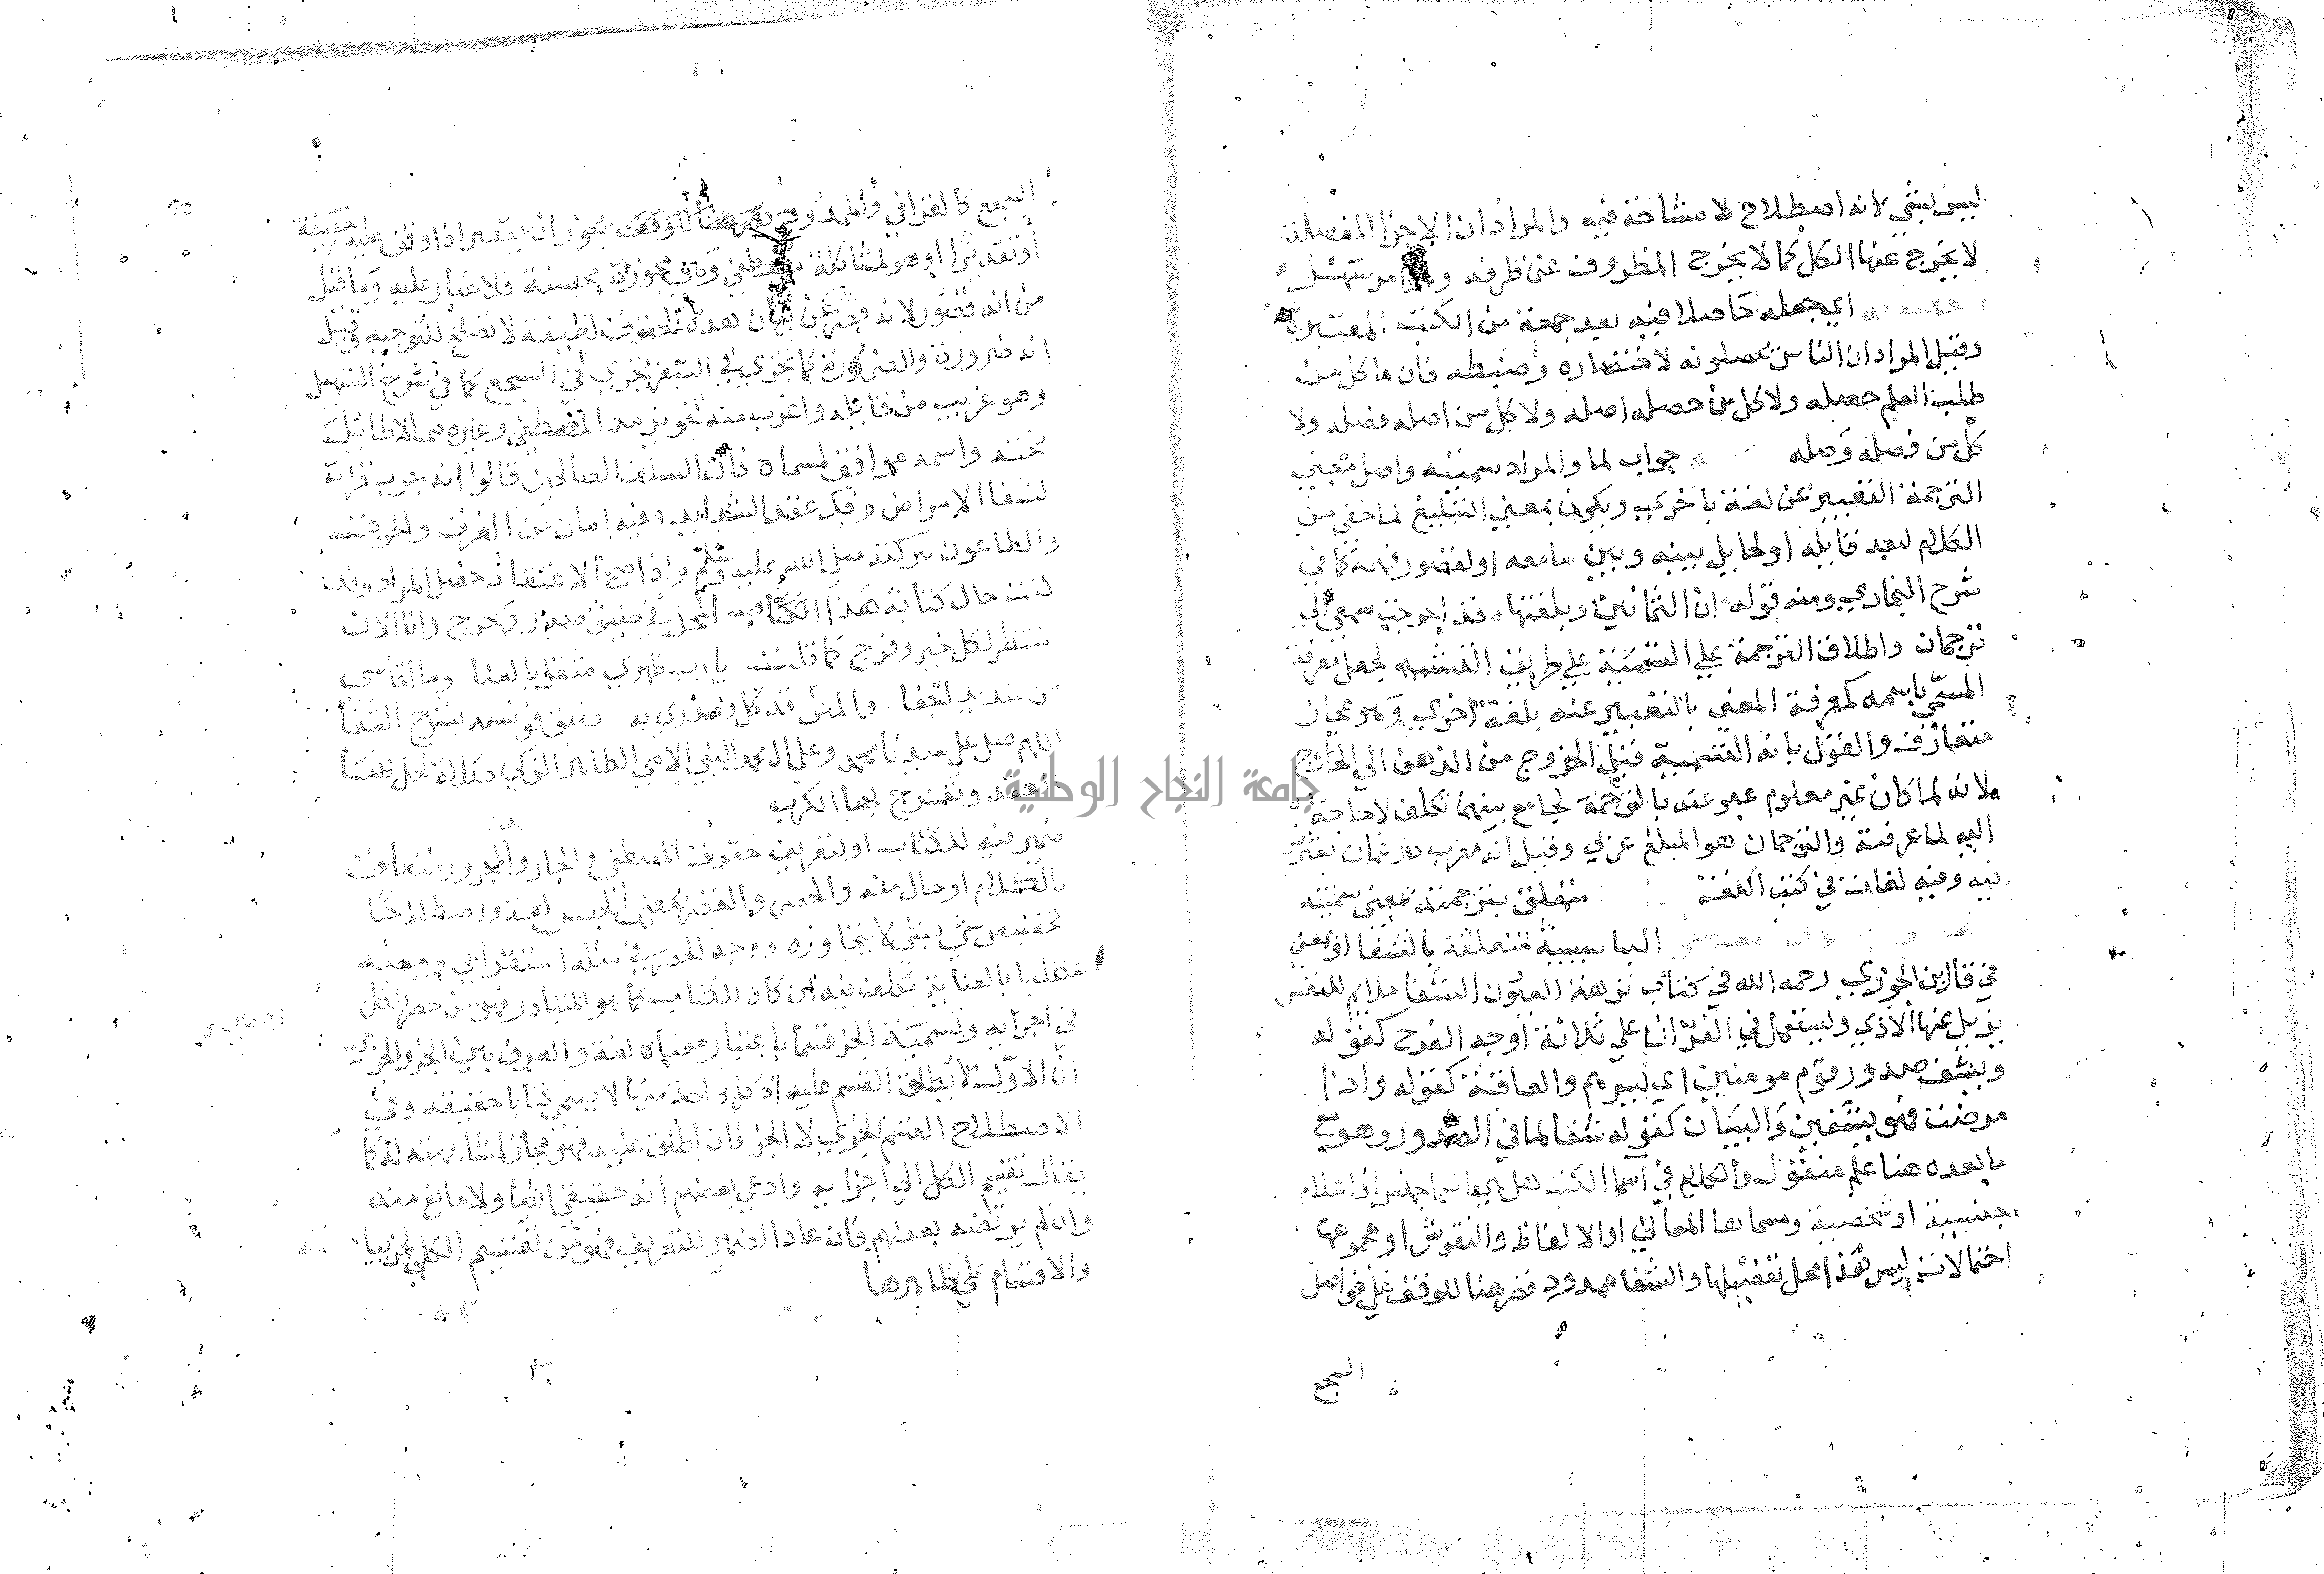 ليس بشي لانه اصطلاح لا مشاحة فيه والمراد ان الاجزا المفصلة
لا يخرج عنها الكل كما لا يخرج المظروف عن ظرفه امر سهل
اي جعله حاصلا فيه بعد جمعه من الكتب المعتبرة
وقيل المراد ان الناس يحصلونه لاختصاره وضبطه فان ما كل من
طلب العلم حصله ولا كل من حصله اصله ولا كل من اصله فصله ولا
كل من فصله وصله جواب لما والمراد سميته واصل معني
الترجمة التعبير عن لغة باخري ويكون بمعني التبليغ لما خفي من
الكلام لبعد قايله او لحايل بينه وبين سامعه او لقصور فهمه كما في
شرح البخاري ومنه قوله ان الثمانين وبلغتها قد احوجت سمعي الي
ترجمان واطلاق الترجمة علي التسمية علي طريق التشبيه لجعل معرفة
المسمي باسمه كمعرفة المعني بالتعبير عنه بلغة اخري وهو مجاز
متعارف والقول بانه التسمية قبل الخروج من الذهن الي الخارج
لانه لما كان غير معلوم عبر عنه بالترجمة لجامع بينهما تكلف لا حاجة
اليه لما عرفته والترجمان هو المبلغ عربي وقيل انه معرب
فيه وفيه لغات في كتب اللغة متعلق بترجمته بمعني سميته
البا سببية متعلقة بالشفا او بمعني
في قال ابن الجوزي رحمه الله في كتاب نزهة العيون الشفا ملايم للنفس
يزيل عنها الاذي ويستعمل في القران علي ثلاثة اوجه الفرح كقوله
ويشف صدور قوم مومنين اي يسرهم والعافية كقوله واذا
مرضت فهو يشفين والبيان كقوله شفا لما في الصدور وهو مع
ما بعده هنا علم منقول والكلام في اسما الكتب هل هي اسما جنس او اعلام
جنسية او شخصية ومسماها المعاني او الالفاظ والنقوش او مجموعها
احتمالات ليس هذا محل تفصيلها والشفا ممدود قصر هنا للوقف علي فواصل
السجع
السجع كالقرافي والممدود يجوز ان يقصر اذا وقف عليه حقيقة
او تقديرا او هو لمشاكلة مصطفي وهي مجوزة محسنة فلا غبار عليه وما قيل
من انه قصور لانه قصر عن بيان هذه الحقوق لطيفة لا تصلح للتوجيه وقيل
انه ضرورة والضرورة كما تجري في الشعر تجري في السجع كما في شرح التسهيل
وهو غريب من قايله واغرب منه تجويز مد المصطفي وغيره مما لا طائل
تحته واسمه موافق لمسماه فان السلف الصالحين قالوا انه جرب قراته
لشفا الامراض وفك عقد الشدايد وفيه امان من الغرق والحرق
والطاعون ببركته صلي الله عليه وسلم واذا صح الاعتقاد حصل المراد وقد
كنت حال كتابة هذا المحل في ضيق صدر وحرج وانا الان
منتظر لكل خير وفرج كما قلت يا رب ظهري مثقل بالعنا وما اقاسي
من شديد الجفا والمتن قد كل وصدري به ضيق فوسعه بشرح الشفا
اللهم صل علي سيدنا محمد وعلي ال محمد النبي الامي الطاهر الزكي صلاة تحل بها
العقد وتفرج بها الكرب
ضمير فيه للكتاب او لتعريف حقوق المصطفي والجار والمجرور متعلق
بالكلام او حال منه والحصر والقصر بمعني الحبس لغة واصطلاحا
تخصيص شي بشي لا يتجاوزه ووجه الحصر في مثله استقرايي وجعله
عقليا بالعناية تكلف فيه ان كان للكتاب كما هو المتبادر فهو من حصر الكل
في اجزايه وتسمية الجز قسما باعتبار معناه لغة والفرق بين الجز والجزي
ان الاول لا يطلق القسم عليه اذ كل واحد منها لا يسمي كتابا حقيقة وفي
الاصطلاح القسم الجزي لا الجز فان اطلق عليه فهو مجاز لمشابهته له كما
يقال تقسيم الكل الي اجزايه وادعي بعضهم انه حقيقي ايضا ولا مانع منه
وان لم يرتضه بعضهم فان عاد الضمير للتعريف فهو من تقسيم الكلي لجزيياته
والاقسام علي ظاهرها
جامعة النجاح الوطنية